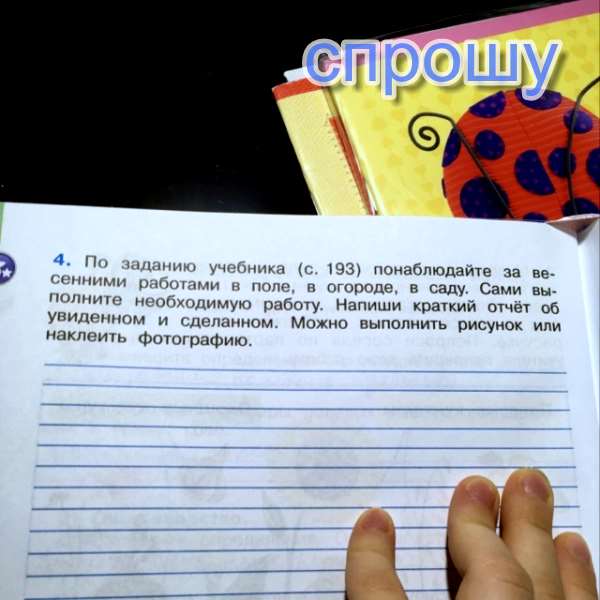 спрошу
4. По заданию учебника (с. 193) понаблюдайте за ве-
сенними работами в поле, в огороде, в саду. Сами вы-
полните необходимую работу. Напиши краткий отчёт об
увиденном и сделанном. Можно выполнить рисунок или
наклеить фотографию.